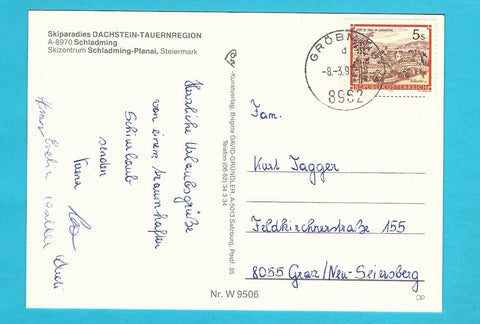 Skiparadies DACHSTEIN-TAUERNREGION
A-8970 Schladming
Skizentrum Schladming-Planai, Steiermark
Herzliche Urlaubsgrüße
von einem traumhaften
Schiurlaub
senden
-Kunstverlag, Brigitte DAVID-GRÜNDLER, A-5013 Salzburg, Postf. 35
Telefon (06 62) 34 3 34
GRÖBMING
-8.-3.9
8962
5s
REPUBLIK ÖSTERREICH
Fam.
Kurt Jagger
Feldkirchnerstraße 155
8055 Graz/Neu-Seiersberg
Nr. W 9506